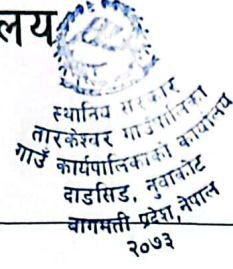 लय
स्थानिय सरकार
तारकेश्वर गाउँपालिका
गाउँ कार्यपालिकाको कार्यालय
दाडसिड, नुवाकोट
वागमती प्रदेश, नेपाल
२०७३